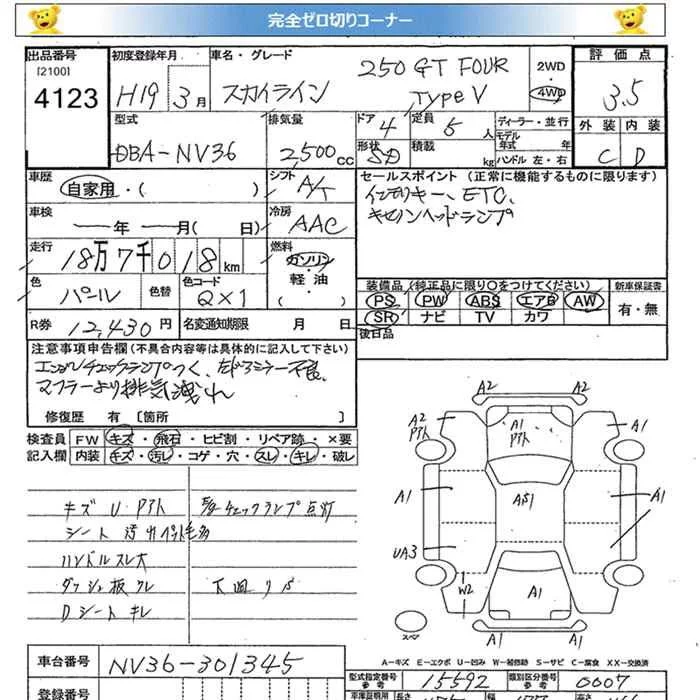 完全ゼロ切りコーナー
出品番号 初度登録年月 車名・グレード 評価点
[2100]
4123 H19 3月 スカイライン 250 GT FOUR TYPE V 2WD 4WD 3.5
型式 排気量 ドア 4 定員 5人 ディーラー・並行 外装 内装
DBA-NV36 2,500cc 形状 SD 積載 kg モデル年式 年式 ハンドル 左・右 C D
車歴 自家用・( ) シフト A/T セールスポイント (正常に機能するものに限ります)
車検 ー年 ー月( 日) 冷房 AAC インテリキー、ETC、
キセノンヘッドランプ
走行 18万7千018km 燃料 ガソリン・軽油・( )
色 パール 色替 色コード QX1 装備品 (純正品に限り○をつけてください) 新車保証書
PS PW ABS エアB AW 有・無
R券 12,430円 名変通知期限 月 日 SR ナビ TV カワ
後日品
注意事項申告欄(不具合内容等は具体的に記入して下さい)
エンジンチェックランプつく、左ドアミラー不良、
マフラーより排気洩れ
修復歴 有 [箇所 ]
検査員記入欄 FW キズ・飛石・ヒビ割・リペア跡・×要
内装 キズ・汚レ・コゲ・穴・スレ・キレ・破レ
キズ U. Pアト E/gチェックランプ点灯
シート 汚れ ペット毛多
ハンドルスレ大
ダッシュ板 クレ 下廻りサビ
Dシート キレ
A2 A2
A2 Pアト A1 Pアト A1
A1 AS1 A1
UA3
W2 A1
スペア A1 A1
A-キズ E-エクボ U-凹み W-補修跡 S-サビ C-腐食 XX-交換済
車台番号 NV36-301345
型式指定番号 参考 15592 類別区分番号 参考 0007
登録番号
車庫証明用 長さ 幅 高さ